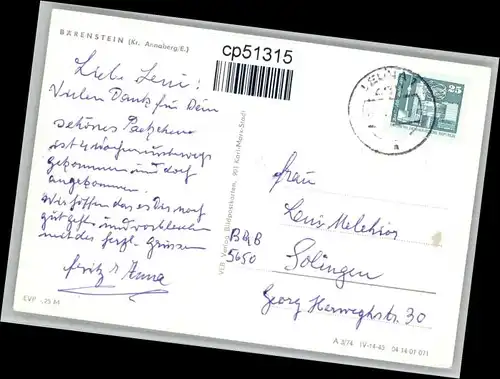 BÄRENSTEIN (Kr. Annaberg/E.)
cp51315
Liebe Leni!
Vielen Dank für Dein
schönes Päckchen
ist 4 Wochen unterwegs
gekommen und doch
angekommen.
Wir hoffen das es Dir noch
gut geht und verbleiben
mit des herzl. Grüssen
Fritz & Anna
EVP -,25 M
VEB Verlag Bildpostkarten, 901 Karl-Marx-Stadt
25
Frau
Leni Melchior
BRB
5650
Solingen
Georg Herweghstr. 30
A 3/74 IV-14-45 04 14 01 071